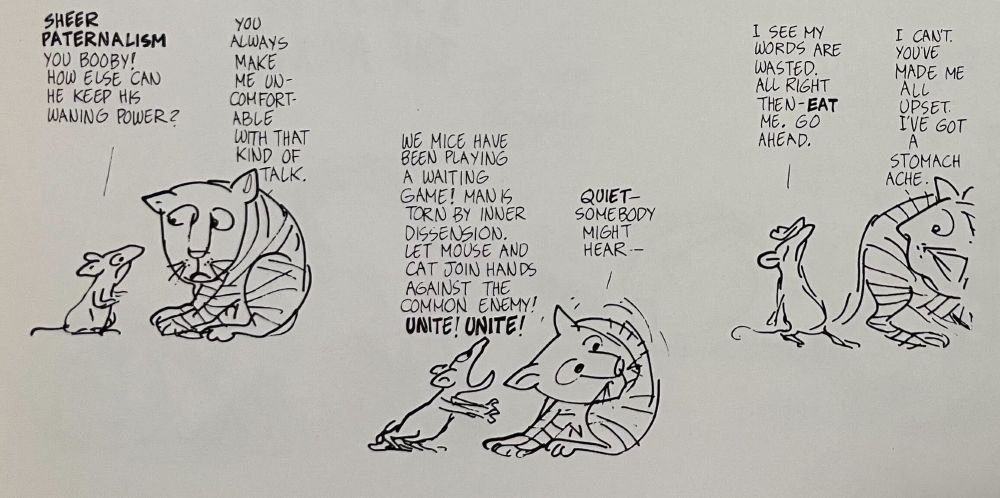 SHEER
PATERNALISM
YOU BOOBY!
HOW ELSE CAN
HE KEEP HIS
WANING POWER?
YOU
ALWAYS
MAKE
ME UN-
COMFORT-
ABLE
WITH THAT
KIND OF
TALK.
WE MICE HAVE
BEEN PLAYING
A WAITING
GAME! MAN IS
TORN BY INNER
DISSENSION.
LET MOUSE AND
CAT JOIN HANDS
AGAINST THE
COMMON ENEMY!
UNITE! UNITE!
QUIET-
SOMEBODY
MIGHT
HEAR--
I SEE MY
WORDS ARE
WASTED.
ALL RIGHT
THEN-EAT
ME. GO
AHEAD.
I CAN'T.
YOU'VE
MADE ME
ALL
UPSET.
I'VE GOT
A
STOMACH
ACHE.